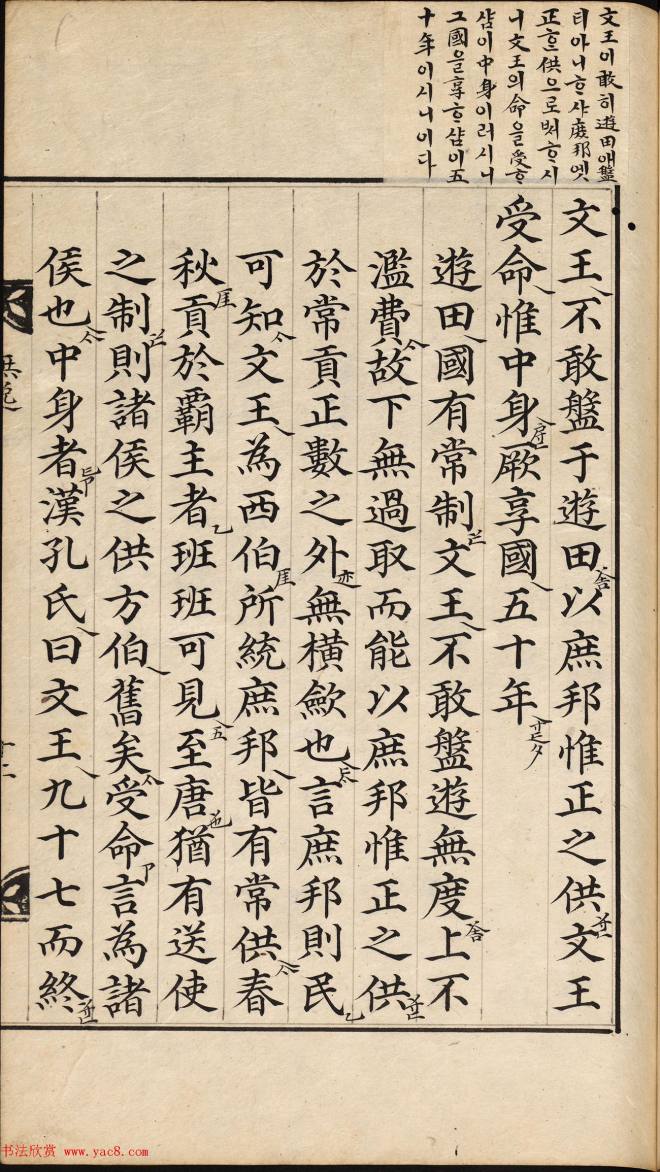 文王이敢히遊田애盤
티아니ᄒᆞ샤庶邦엣
正ᄒᆞᆫ供으로ᄡᅥᄒᆞ시
니文王의命을受ᄒᆞ
샴이中身이러시니
그國을享ᄒᆞ샴이五
十年이시니이다
文王不敢盤于遊田以庶邦惟正之供文王
受命惟中身厥享國五十年
遊田國有常制文王不敢盤遊無度上不
濫費故下無過取而能以庶邦惟正之供
於常貢正數之外無橫歛也言庶邦則民
可知文王為西伯所統庶邦皆有常供春
秋貢於覇主者班班可見至唐猶有送使
之制則諸侯之供方伯舊矣受命言為諸
侯也中身者漢孔氏曰文王九十七而終
书法欣赏 www.yac8.com